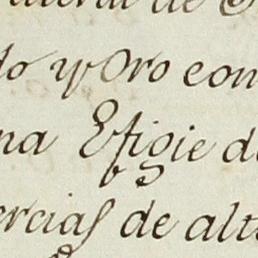 de
do y Oro con
na Efigie de
ercias de alt